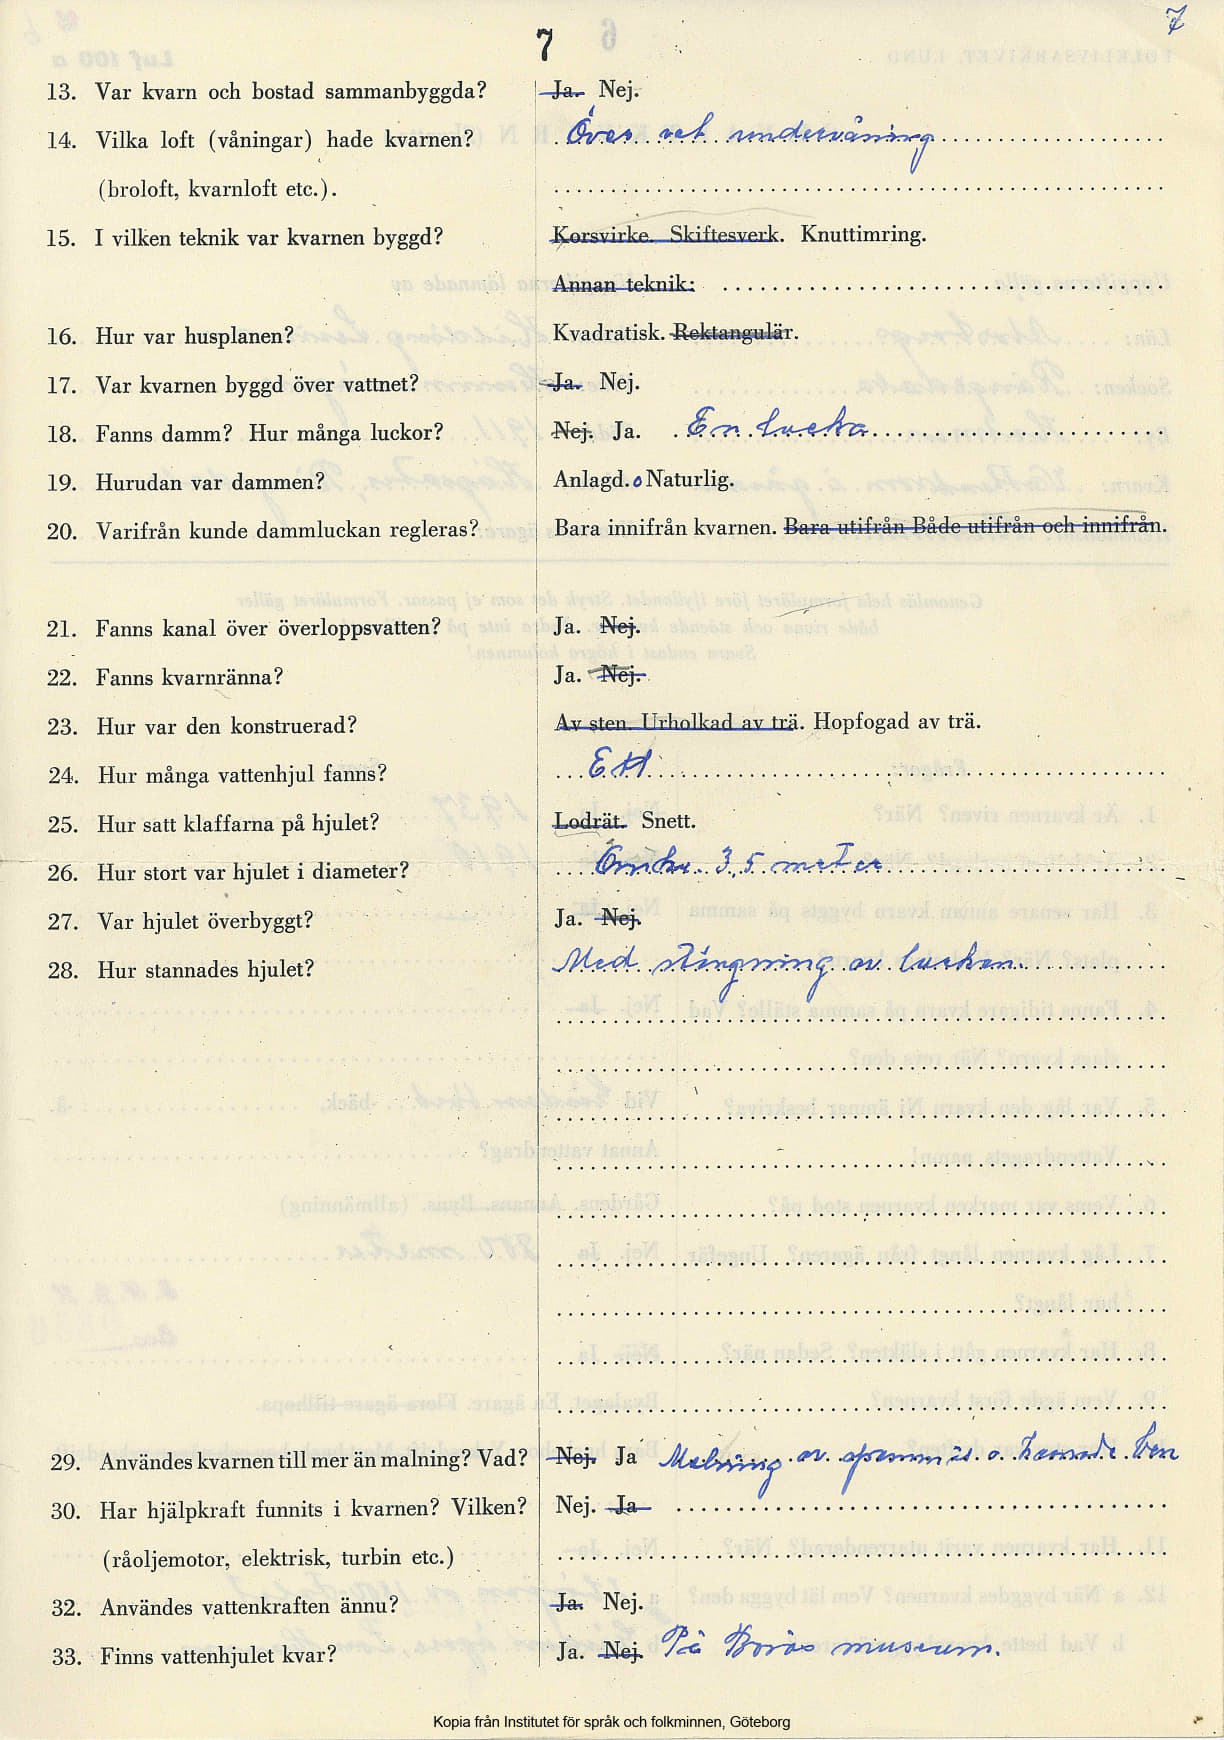 7
7
13. Var kvarn och bostad sammanbyggda? Ja. Nej.
14. Vilka loft (våningar) hade kvarnen? Över och undervåning
(broloft, kvarnloft etc.).
15. I vilken teknik var kvarnen byggd? Korsvirke. Skiftesverk. Knuttimring.
Annan teknik:
16. Hur var husplanen? Kvadratisk. Rektangulär.
17. Var kvarnen byggd över vattnet? Ja. Nej.
18. Fanns damm? Hur många luckor? Nej. Ja. En lucka
19. Hurudan var dammen? Anlagd. o Naturlig.
20. Varifrån kunde dammluckan regleras? Bara innifrån kvarnen. Bara utifrån Både utifrån och innifrån.
21. Fanns kanal över överloppsvatten? Ja. Nej.
22. Fanns kvarnränna? Ja. Nej.
23. Hur var den konstruerad? Av sten. Urholkad av trä. Hopfogad av trä.
24. Hur många vattenhjul fanns? Ett
25. Hur satt klaffarna på hjulet? Lodrät. Snett.
26. Hur stort var hjulet i diameter? 3,5 meter
27. Var hjulet överbyggt? Ja. Nej.
28. Hur stannades hjulet? Med stängning av luckan.
29. Användes kvarnen till mer än malning? Vad? Nej. Ja Malning av o. ben
30. Har hjälpkraft funnits i kvarnen? Vilken? Nej. Ja
(råoljemotor, elektrisk, turbin etc.)
32. Användes vattenkraften ännu? Ja. Nej.
33. Finns vattenhjulet kvar? Ja. Nej. På Borås museum.
Kopia från Institutet för språk och folkminnen, Göteborg